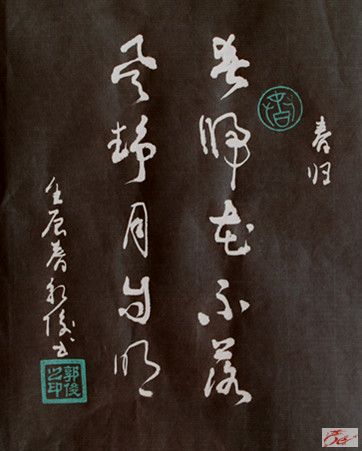 春归
春歸花不落
风静月自明
壬辰春郭俊书
郭俊之印